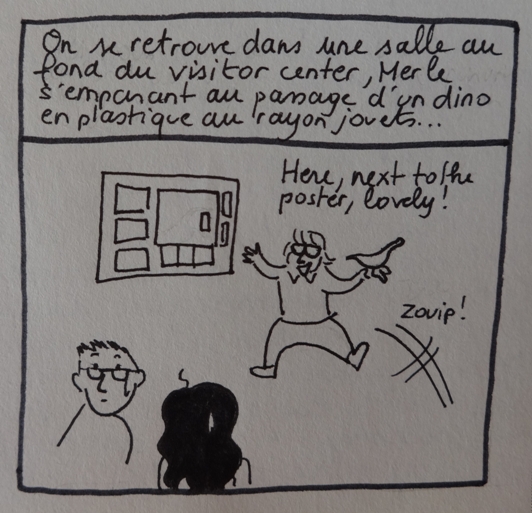 On se retrouve dans une salle au
fond du visitor center, Merle
s'emparant au passage d'un dino
en plastique au rayon jouets...
Here, next to the
poster, lovely!
Zouip!